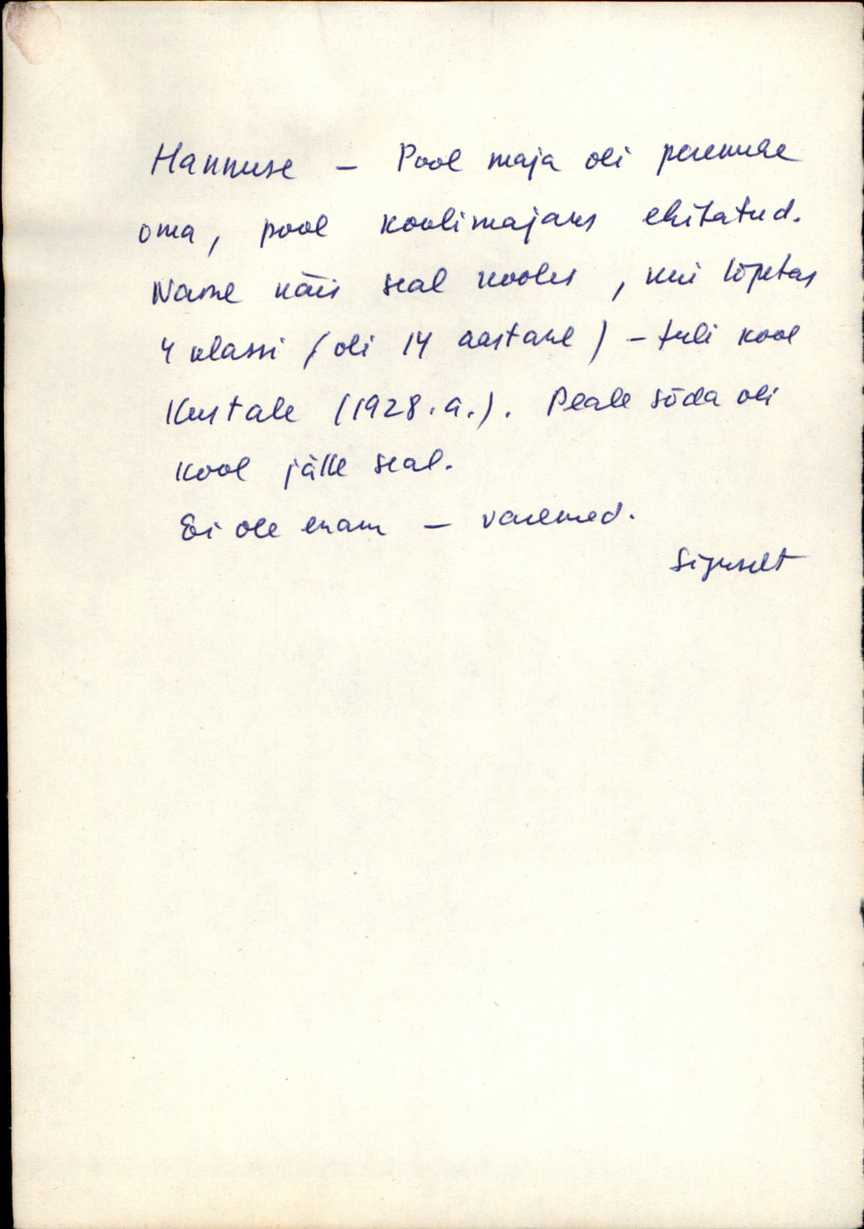 Hannuse – Pool maja oli peremehe
oma, pool koolimajaks ehitatud.
Naine käis seal koolis, kui lõpetas
4 klassi (oli 14 aastane) – tuli kool
Kustale (1928.a.). Peale sõda oli
kool jälle seal.
Ei ole enam – varemed.